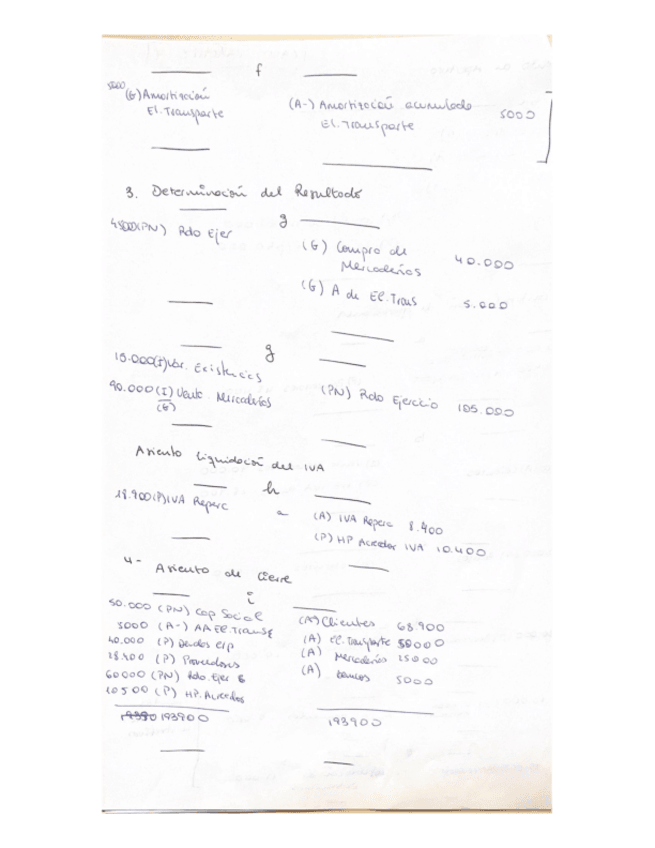 f
5000 (G) Amortización (A-) Amortización acumulada 5000
El. Transporte El. Transporte
3. Determinación del Resultado
g
45000 (PN) Rdo Ejer
(G) Compra de 40.000
Mercaderías
(G) A de El. Trans 5.000
g
15.000 (I) Var. Existencias
90.000 (I) Venta Mercaderías (PN) Rdo Ejercicio 105.000
(G)
Asiento liquidación del IVA
h
18.900 (P) IVA Reperc a (A) IVA Reperc 8.400
(P) HP Acreedor IVA 10.400
4- Asiento de Cierre
i
50.000 (PN) Cap Social (A) Clientes 68.900
5000 (A-) AA El. Transp (A) El. Transporte
40.000 (P) Deudas c/p (A) Mercaderías 15000
(P) Proveedores (A) Bancos 5000
60000 (PN) Rdo. Ejer
10500 (P) HP. Acreedor
193900 193900